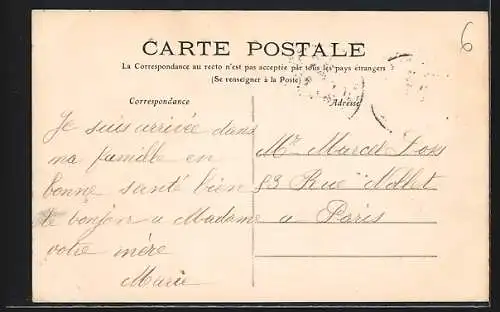 6
CARTE POSTALE
La Correspondance au recto n'est pas acceptée par tous les pays étrangers
(Se renseigner à la Poste)
Correspondance
Adresse
Je suis arrivée dans
ma famille en
bonne santé bien
le bonjour a Madame
votre mère
Marie
Mr Marcel
83 Rue Nollet
a Paris